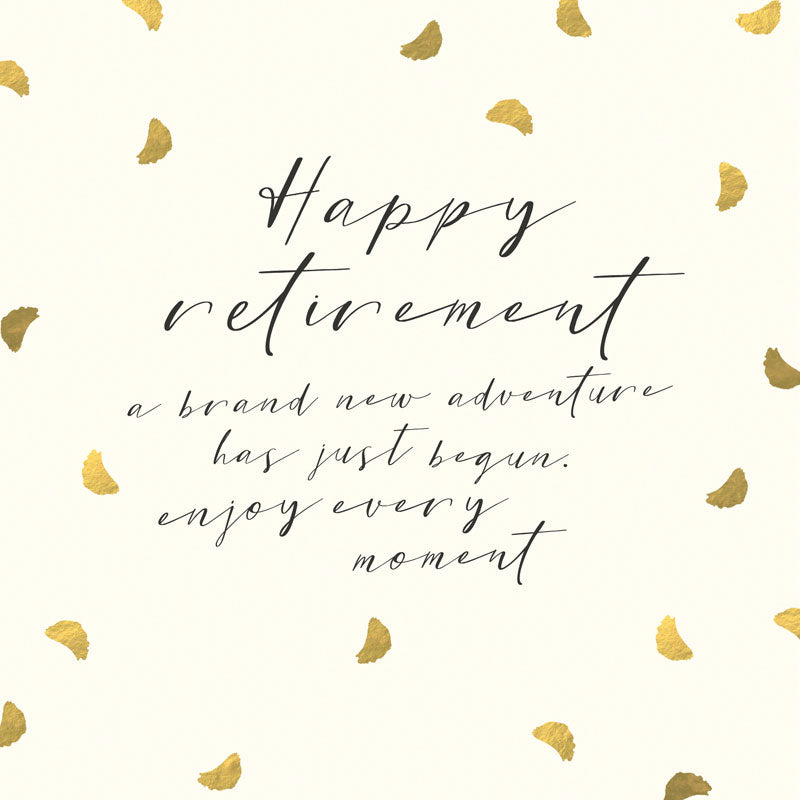 Happy
retirement
a brand new adventure
has just begun.
enjoy every
moment